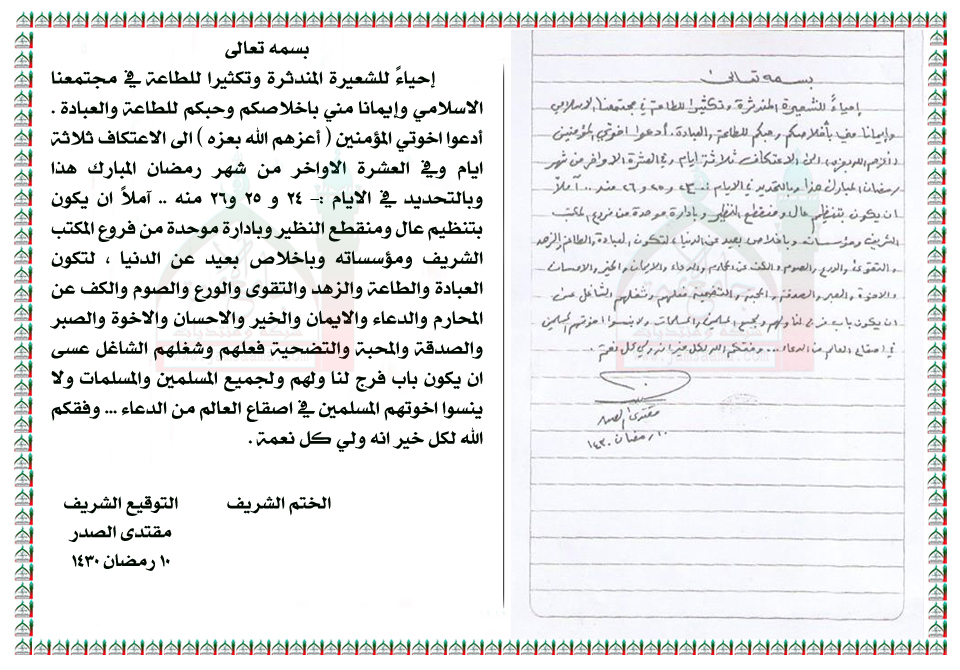 بسمه تعالى
إحياءً للشعيرة المندثرة وتكثيرا للطاعة في مجتمعنا
الاسلامي وإيمانا مني باخلاصكم وحبكم للطاعة والعبادة .
أدعوا اخوتي المؤمنين ( أعزهم الله بعزه ) الى الاعتكاف ثلاثة
ايام وفي العشرة الاواخر من شهر رمضان المبارك هذا
وبالتحديد في الايام :- ٢٤ و ٢٥ و٢٦ منه .. آملاً ان يكون
بتنظيم عال ومنقطع النظير وبادارة موحدة من فروع المكتب
الشريف ومؤسساته وباخلاص بعيد عن الدنيا ، لتكون
العبادة والطاعة والزهد والتقوى والورع والصوم والكف عن
المحارم والدعاء والايمان والخير والاحسان والاخوة والصبر
والصدقة والمحبة والتضحية فعلهم وشغلهم الشاغل عسى
ان يكون باب فرج لنا ولهم ولجميع المسلمين والمسلمات ولا
ينسوا اخوتهم المسلمين في اصقاع العالم من الدعاء ... وفقكم
الله لكل خير انه ولي كل نعمة .
الختم الشريف
التوقيع الشريف
مقتدى الصدر
١٠ رمضان ١٤٣٠
بسمه تعالى
إحياءً للشعيرة المندثرة وتكثيرا للطاعة في مجتمعنا الاسلامي
وإيمانا مني بأخلاصكم وحبكم للطاعة والعبادة . أدعوا اخوتي المؤمنين
الى الاعتكاف ثلاثة ايام وفي العشرة الاواخر من شهر
رمضان المبارك هذا وبالتحديد في الايام :- و ٢٥ و ٢٦ منه ... آملاً
ان يكون بتنظيم عال ومنقطع النظير وبادارة موحدة من فروع المكتب
الشريف ومؤسساته وباخلاص بعيد عن الدنيا ، لتكون العبادة والطاعة والزهد
والتقوى والورع والصوم والكف عن المحارم والدعاء والايمان والخير والاحسان
والاخوة والصبر والصدقة والمحبة والتضحية فعلهم وشغلهم الشاغل عسى
ان يكون باب فرج لنا ولهم ولجميع المسلمين والمسلمات ولا ينسوا اخوتهم المسلمين
في اصقاع العالم من الدعاء ... وفقكم الله لكل خير انه ولي كل نعمة .
مقتدى الصدر
١٠ رمضان ١٤٣٠